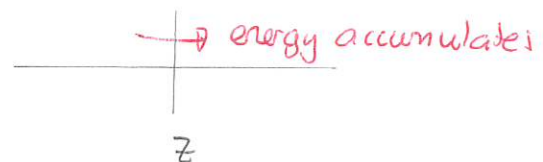 energy accumulates
z